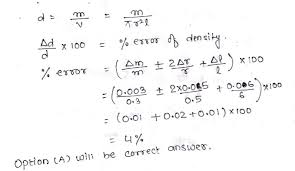 d = m/v = m/πr²l
Δd/d × 100 = % error of density.
% error = (Δm/m ± 2Δr/r + Δl/l) × 100
= (0.003/0.3 ± 2×0.005/0.5 + 0.006/6) × 100
= (0.01 + 0.02 + 0.01) × 100
= 4%
Option (A) will be correct answer.